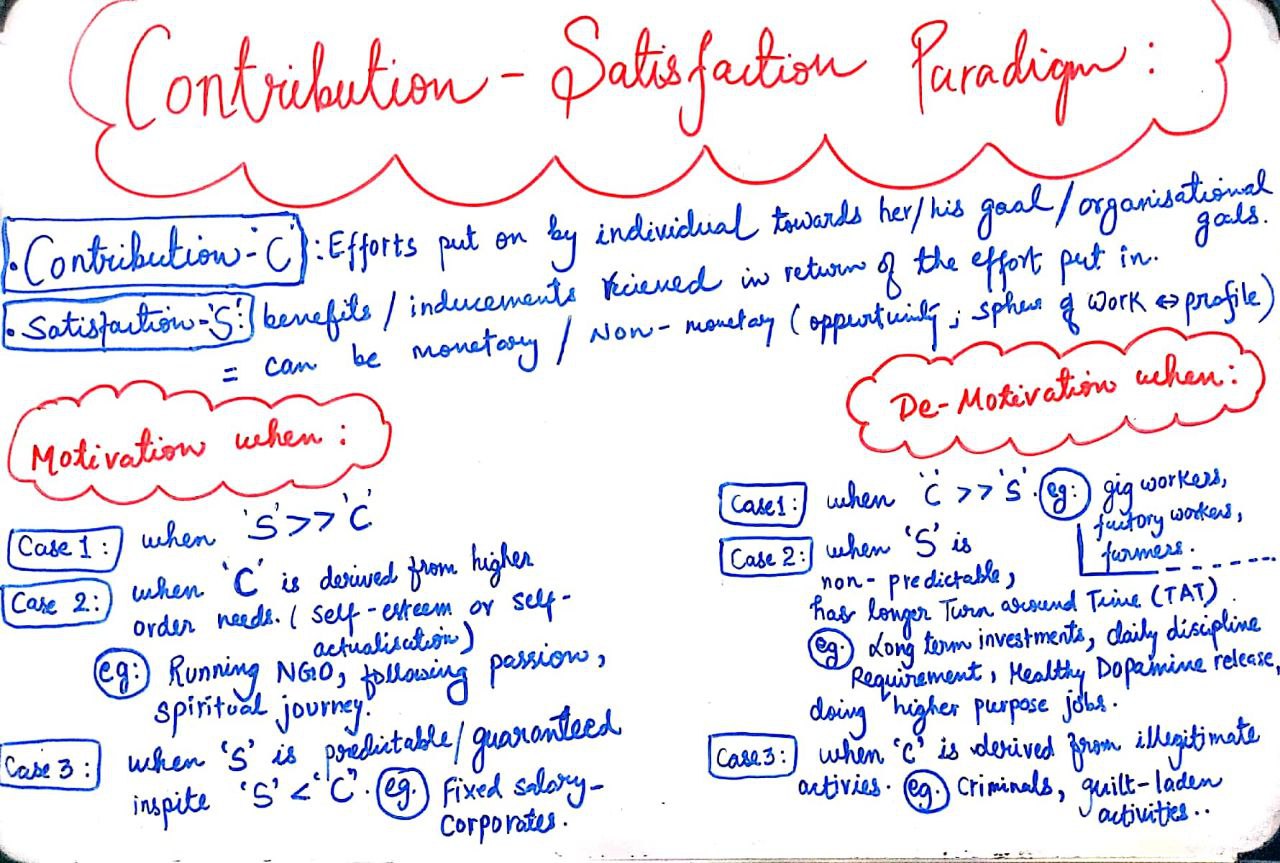 Contribution - Satisfaction Paradigm :
• Contribution - 'C' : Efforts put on by individual towards her/his goal / organisational goals.
• Satisfaction - 'S' : benefits / inducements recieved in return of the effort put in.
= can be monetary / Non-monetary (oppurtunity ; sphere of work ⇔ profile)
Motivation when :
Case 1 : when 'S' >> 'C'
Case 2 : when 'C' is derived from higher
order needs. ( self-esteem or self-
actualisation)
eg: Running NGO, following passion,
spiritual journey.
Case 3 : when 'S' is predictable/guaranteed
inspite 'S' < "C". eg. Fixed salary-
corporates.
De-Motivation when :
Case 1 : when 'C' >> 'S'. eg: gig workers,
factory workers,
farmers.
Case 2 : when 'S' is
non-predictable,
has longer Turn around Time (TAT).
eg: Long term investments, daily discipline
Requirement, Healthy Dopamine release,
doing higher purpose jobs.
Case 3 : when 'C' is derived from illegitimate
activies. eg. Criminals, guilt-laden
activities..